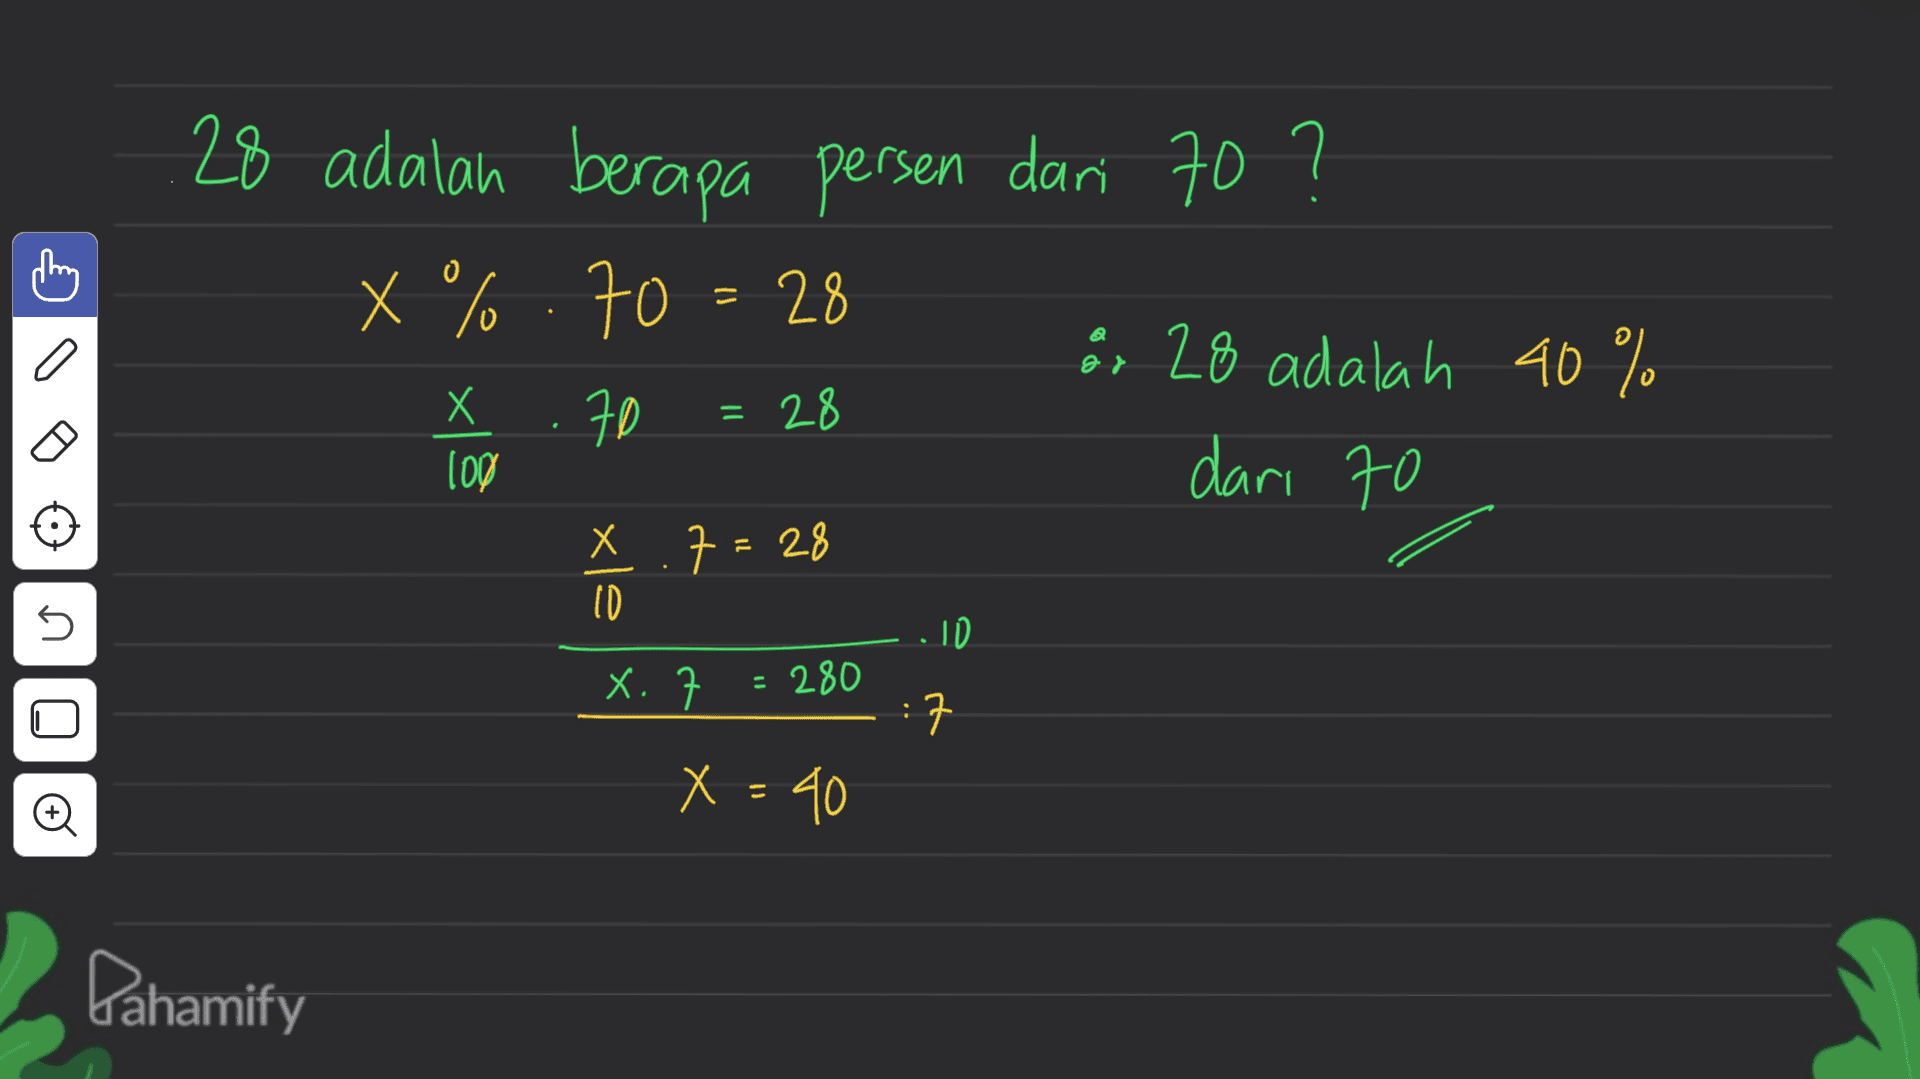 28 adalah berapa persen dari 70 ?
x % . 70 = 28
x/100 . 70 = 28
x/10 . 7 = 28
. 10
x . 7 = 280
: 7
x = 40
∴ 28 adalah 40 %
dari 70
Pahamify